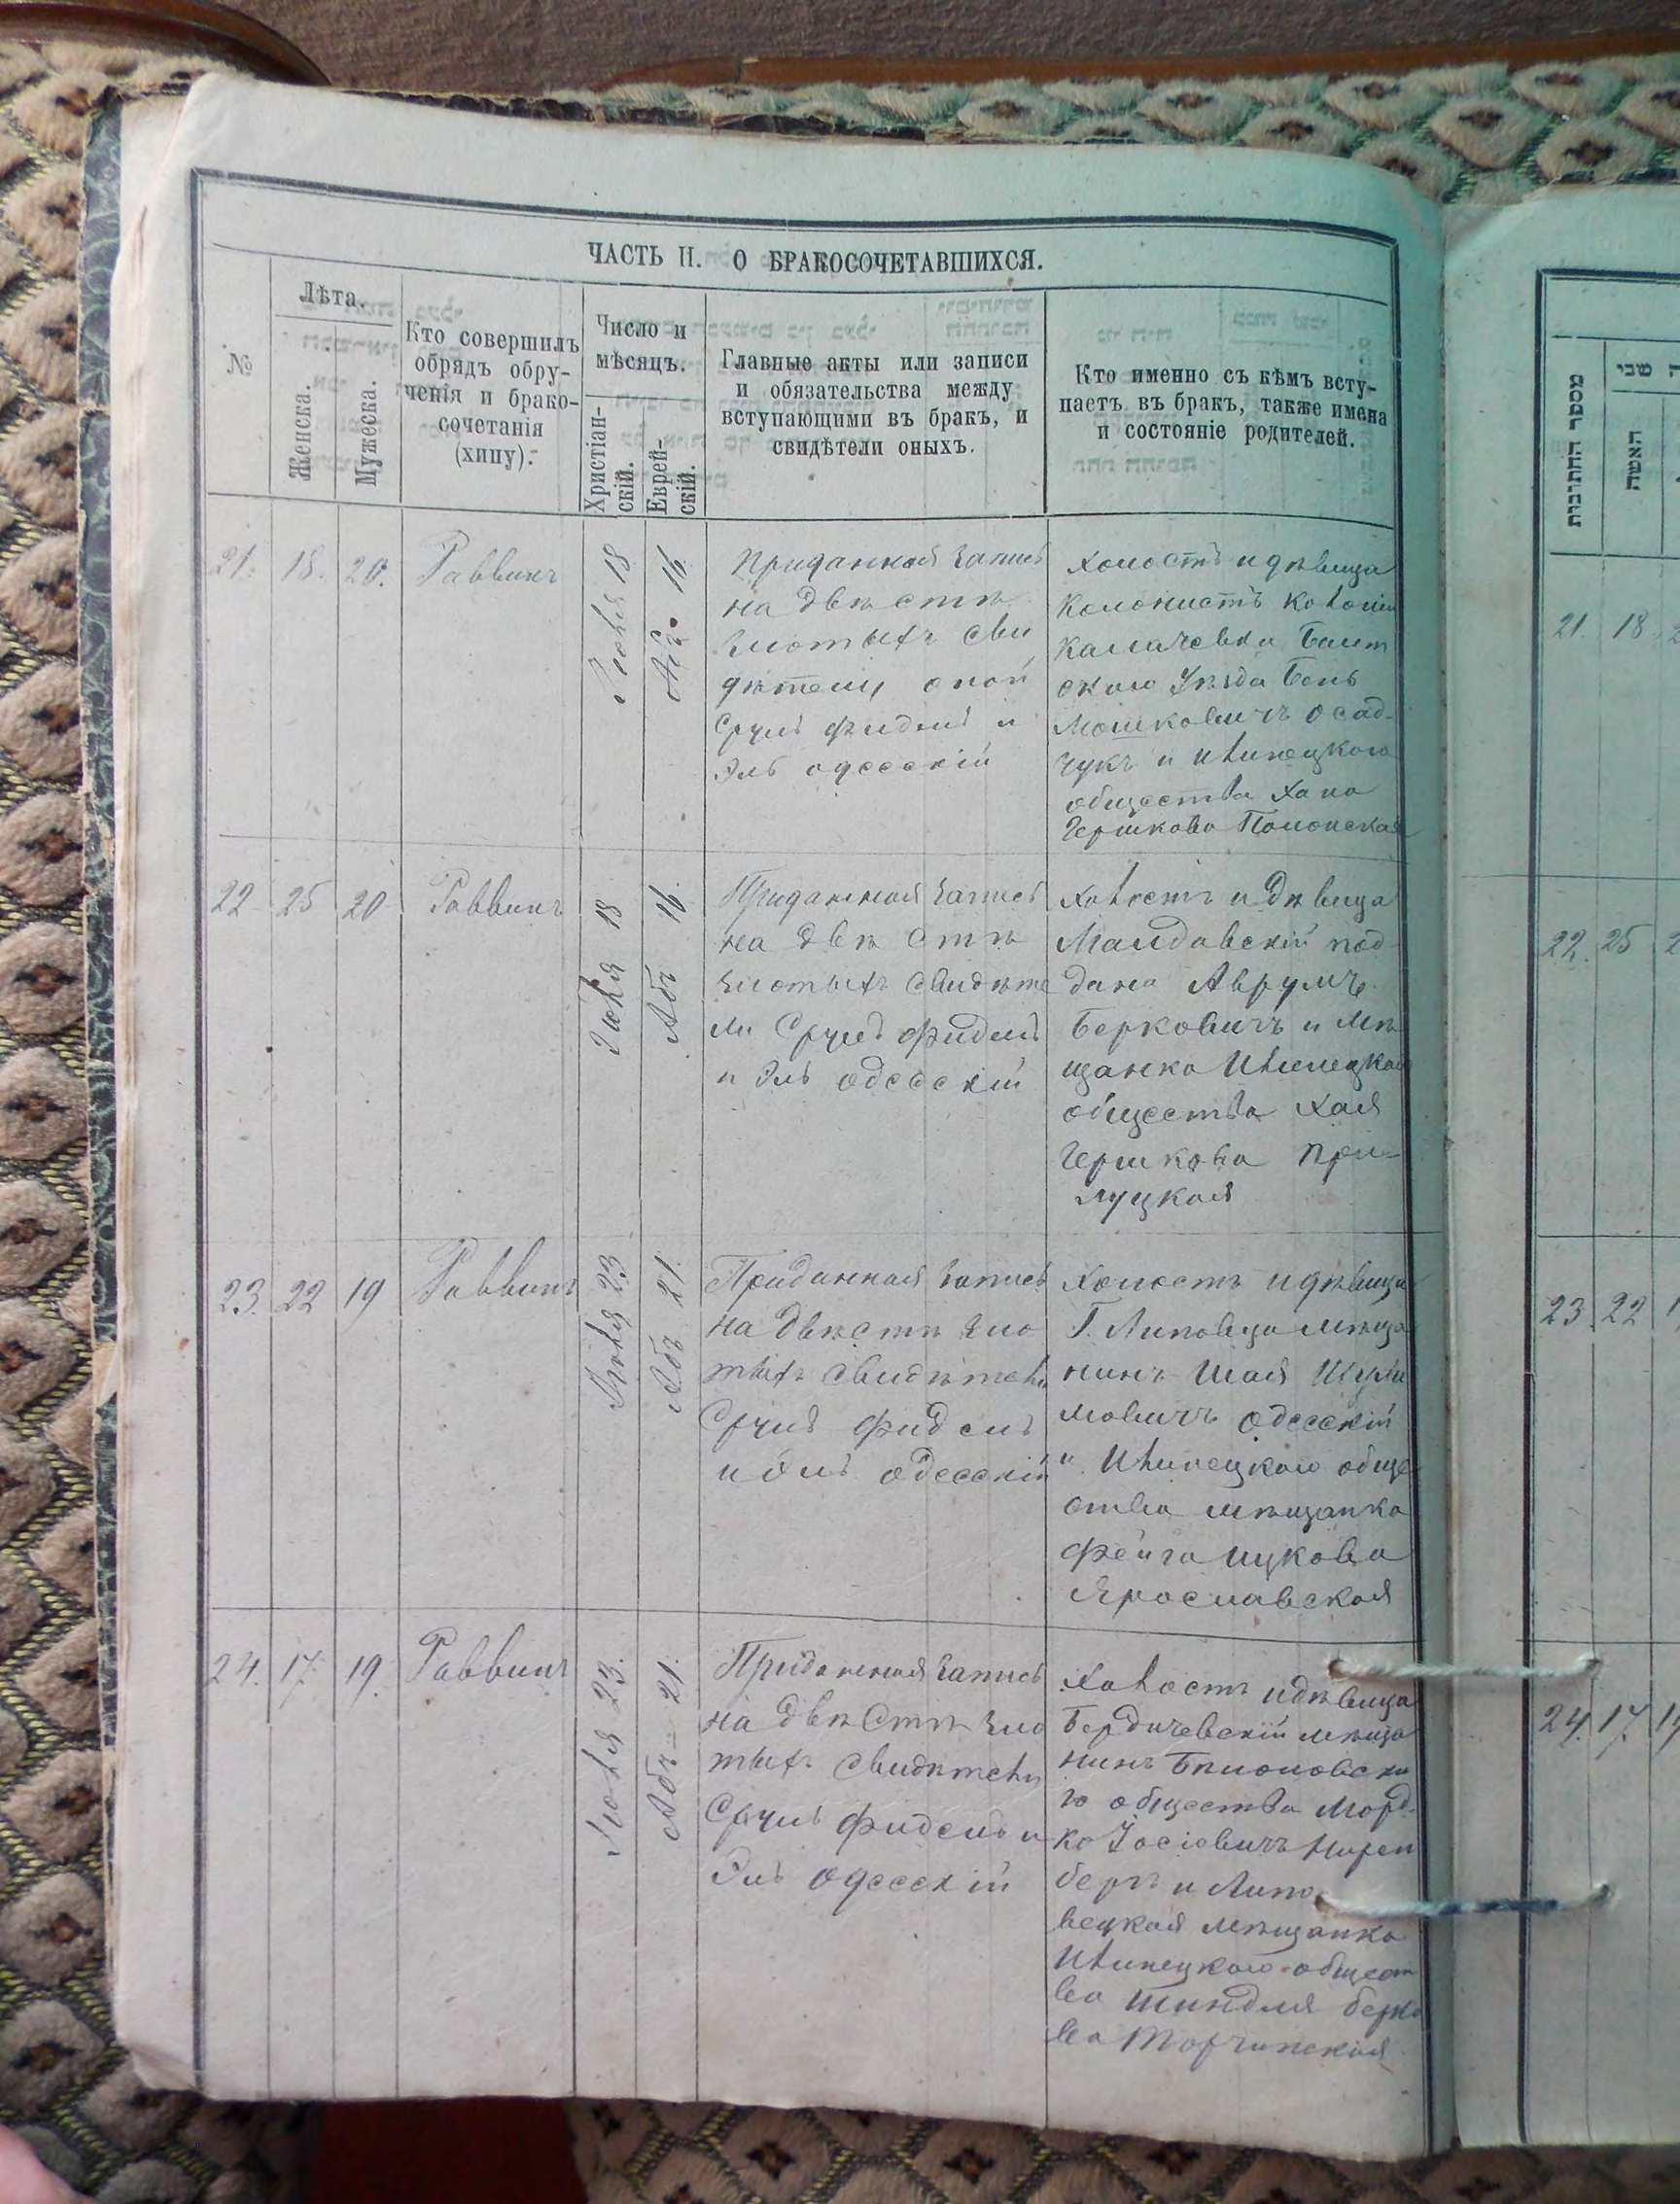 ЧАСТЬ II. О БРАКОСОЧЕТАВШИХСЯ.
№
Лѣта.
Женска.
Мужеска.
Кто совершилъ
обрядъ обру-
ченія и брако-
сочетанія
(хипу).
Число и
мѣсяцъ.
Христіан-
скій.
Еврей-
скій.
Главные акты или записи
и обязательства между
вступающими въ бракъ, и
свидѣтели оныхъ.
Кто именно съ кѣмъ всту-
паетъ въ бракъ, также имена
и состояніе родителей.
21. 18. 20. Раввинъ
Іюля 18
Абъ 16
Приданная запись
на двѣ стѣ
злотыхъ сви
дѣтели оной
Сруль Фидель и
Эль Одесскій
Холостъ и дѣвица
Колонистъ колоніи
Балт
скаго Уѣзда Бень
Мошковичъ Осад-
чукъ и Илинецкого
общества Хана
Гершкова Полонская
22 25 20 Раввинъ
Іюля 18
Абъ 16.
Приданная запись
на двѣ стѣ
злотыхъ свидѣте
ли Сруль Фидель
и Эль Одесскій
Холостъ и дѣвица
Малдавскій под-
дана Аврумъ
Берковичъ и мѣ
щанка Илинецкого
общества Хая
Гершкова При-
луцкая
23. 22 19 Раввинъ
Іюля 23
Абъ 21.
Приданная запись
на двѣ стѣ зло
тыхъ свидѣтели
Сруль Фидель
и Эль Одесскій
Холостъ и дѣвица
Г. Липовца мѣща
нинъ Шая Шули
мовичъ Одесскій
и Илинецкого обще
ства мѣщанка
Фейга Ицкова
Ярославская
24. 17. 19. Раввинъ
Іюля 23.
Абъ 21.
Приданная запись
на двѣ стѣ зло
тыхъ свидѣтели
Сруль Фидель и
Эль Одесскій
Холостъ и дѣвица
Бердичевскій мѣща
нинъ
го общества Морд-
ко Іосіовичъ Нирен
бергъ и Липо
вецкая мѣщанка
Илинецкого общест
ва Шиндля Берко
ва Торчинская
מספר החתונות
האשה
21. 18
22. 25
23 22
24. 17.